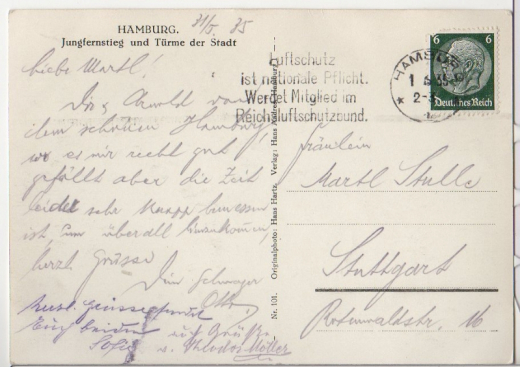 HAMBURG.
Jungfernstieg und Türme der Stadt
31/5 35
Luftschutz
ist nationale Pflicht.
Werdet Mitglied im
Reichsluftschutzbund.
HAMBURG
1 6 35
2-3
6 6
Deutsches Reich
Liebe Martl!
dem schönen Hamburg
wo es mir recht gut
gefällt aber die Zeit
leider sehr knapp bemessen
ist um überall
herzl Grüsse
Dein Schwager
Otto
Sofie
u. Theodor Möller
Fräulein
Martl Stulle
Stuttgart
Rotenwaldstr. 16
Nr. 101. Originalphoto: Hans Hartz, Verlag: Hans Andres, Hamburg 1